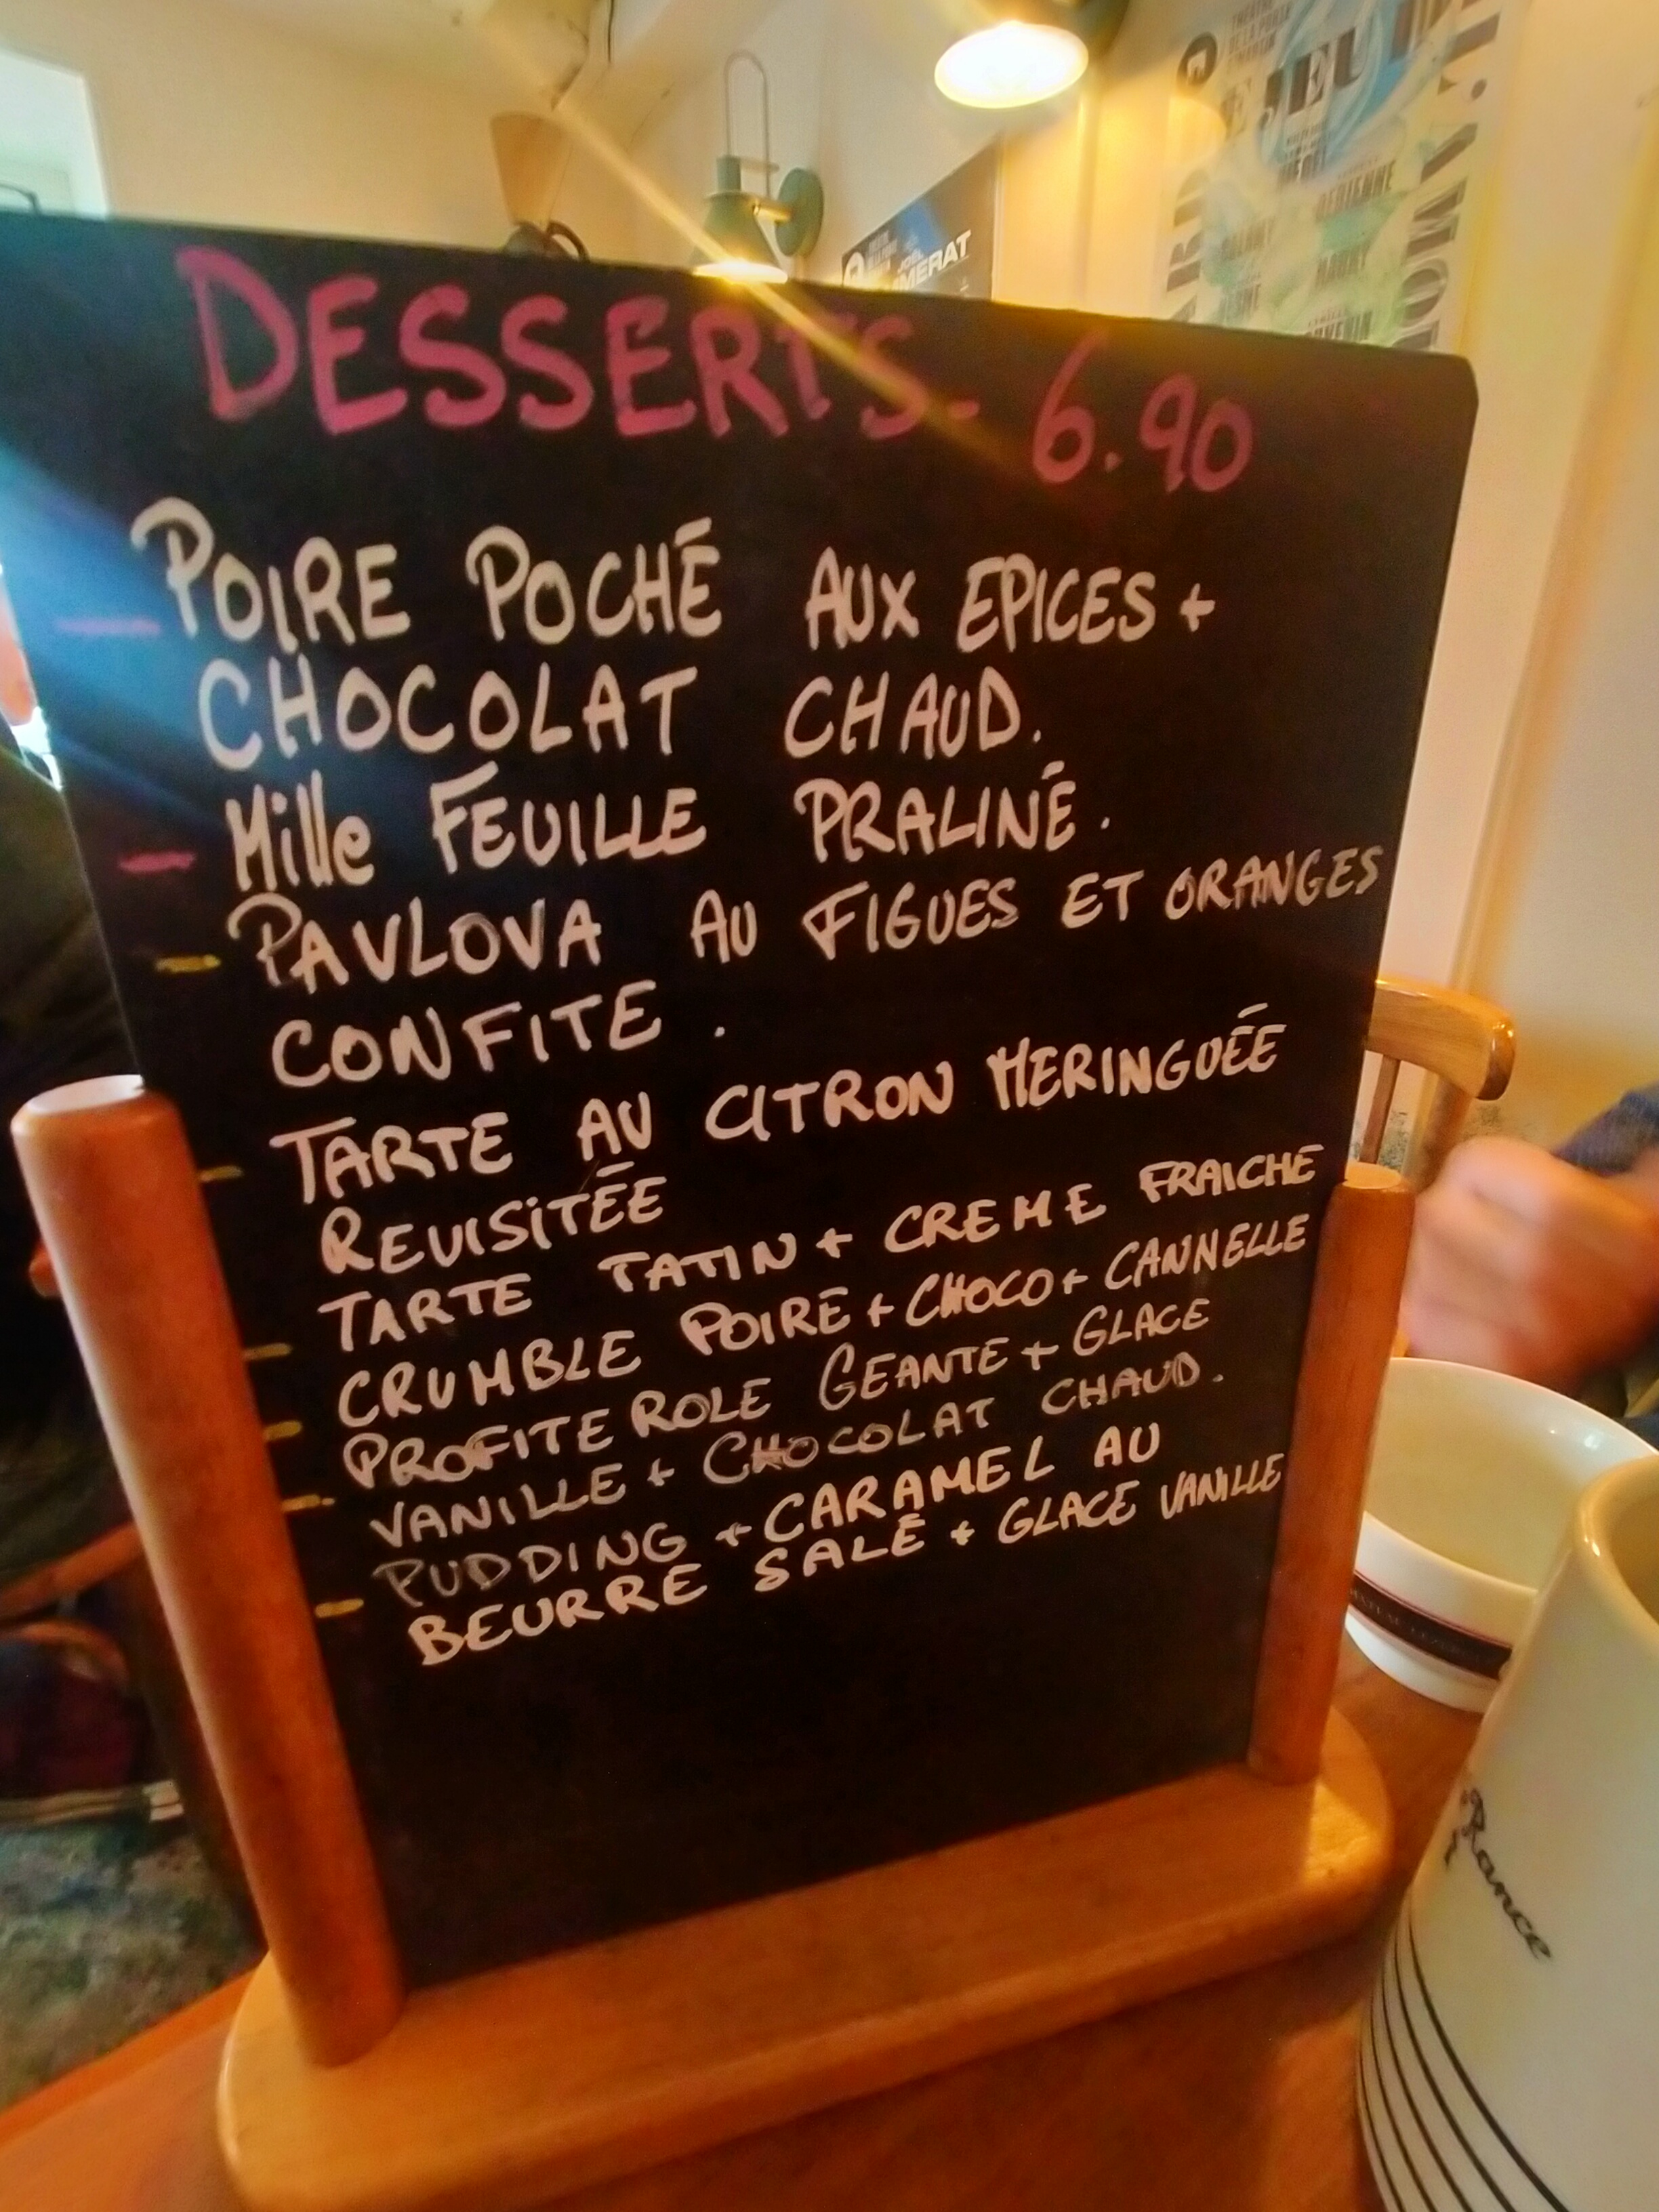 DESSERTS - 6.90
- POIRE POCHÉ AUX EPICES +
CHOCOLAT CHAUD.
- Mille FEUILLE PRALINÉ.
- PAVLOVA AU FIGUES ET ORANGES
CONFITE.
- TARTE AU CITRON MERINGUÉE
REVISITÉE
- TARTE TATIN + CREME FRAICHE
- CRUMBLE POIRE + CHOCO + CANNELLE
- PROFITEROLE GEANTE + GLACE
VANILLE + CHOCOLAT CHAUD.
- PUDDING + CARAMEL AU
BEURRE SALÉ + GLACE VANILLE
MERAT
JEU
AMO
Rance